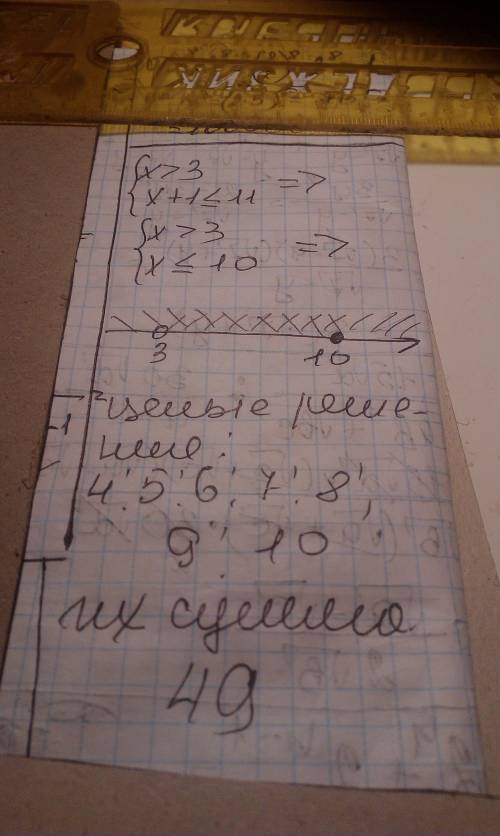 x>3
x+1≤11 =>
x>3
x≤10 =>
3 10
целые реше-
ние:
4; 5; 6; 7; 8;
9; 10
их сумма
49